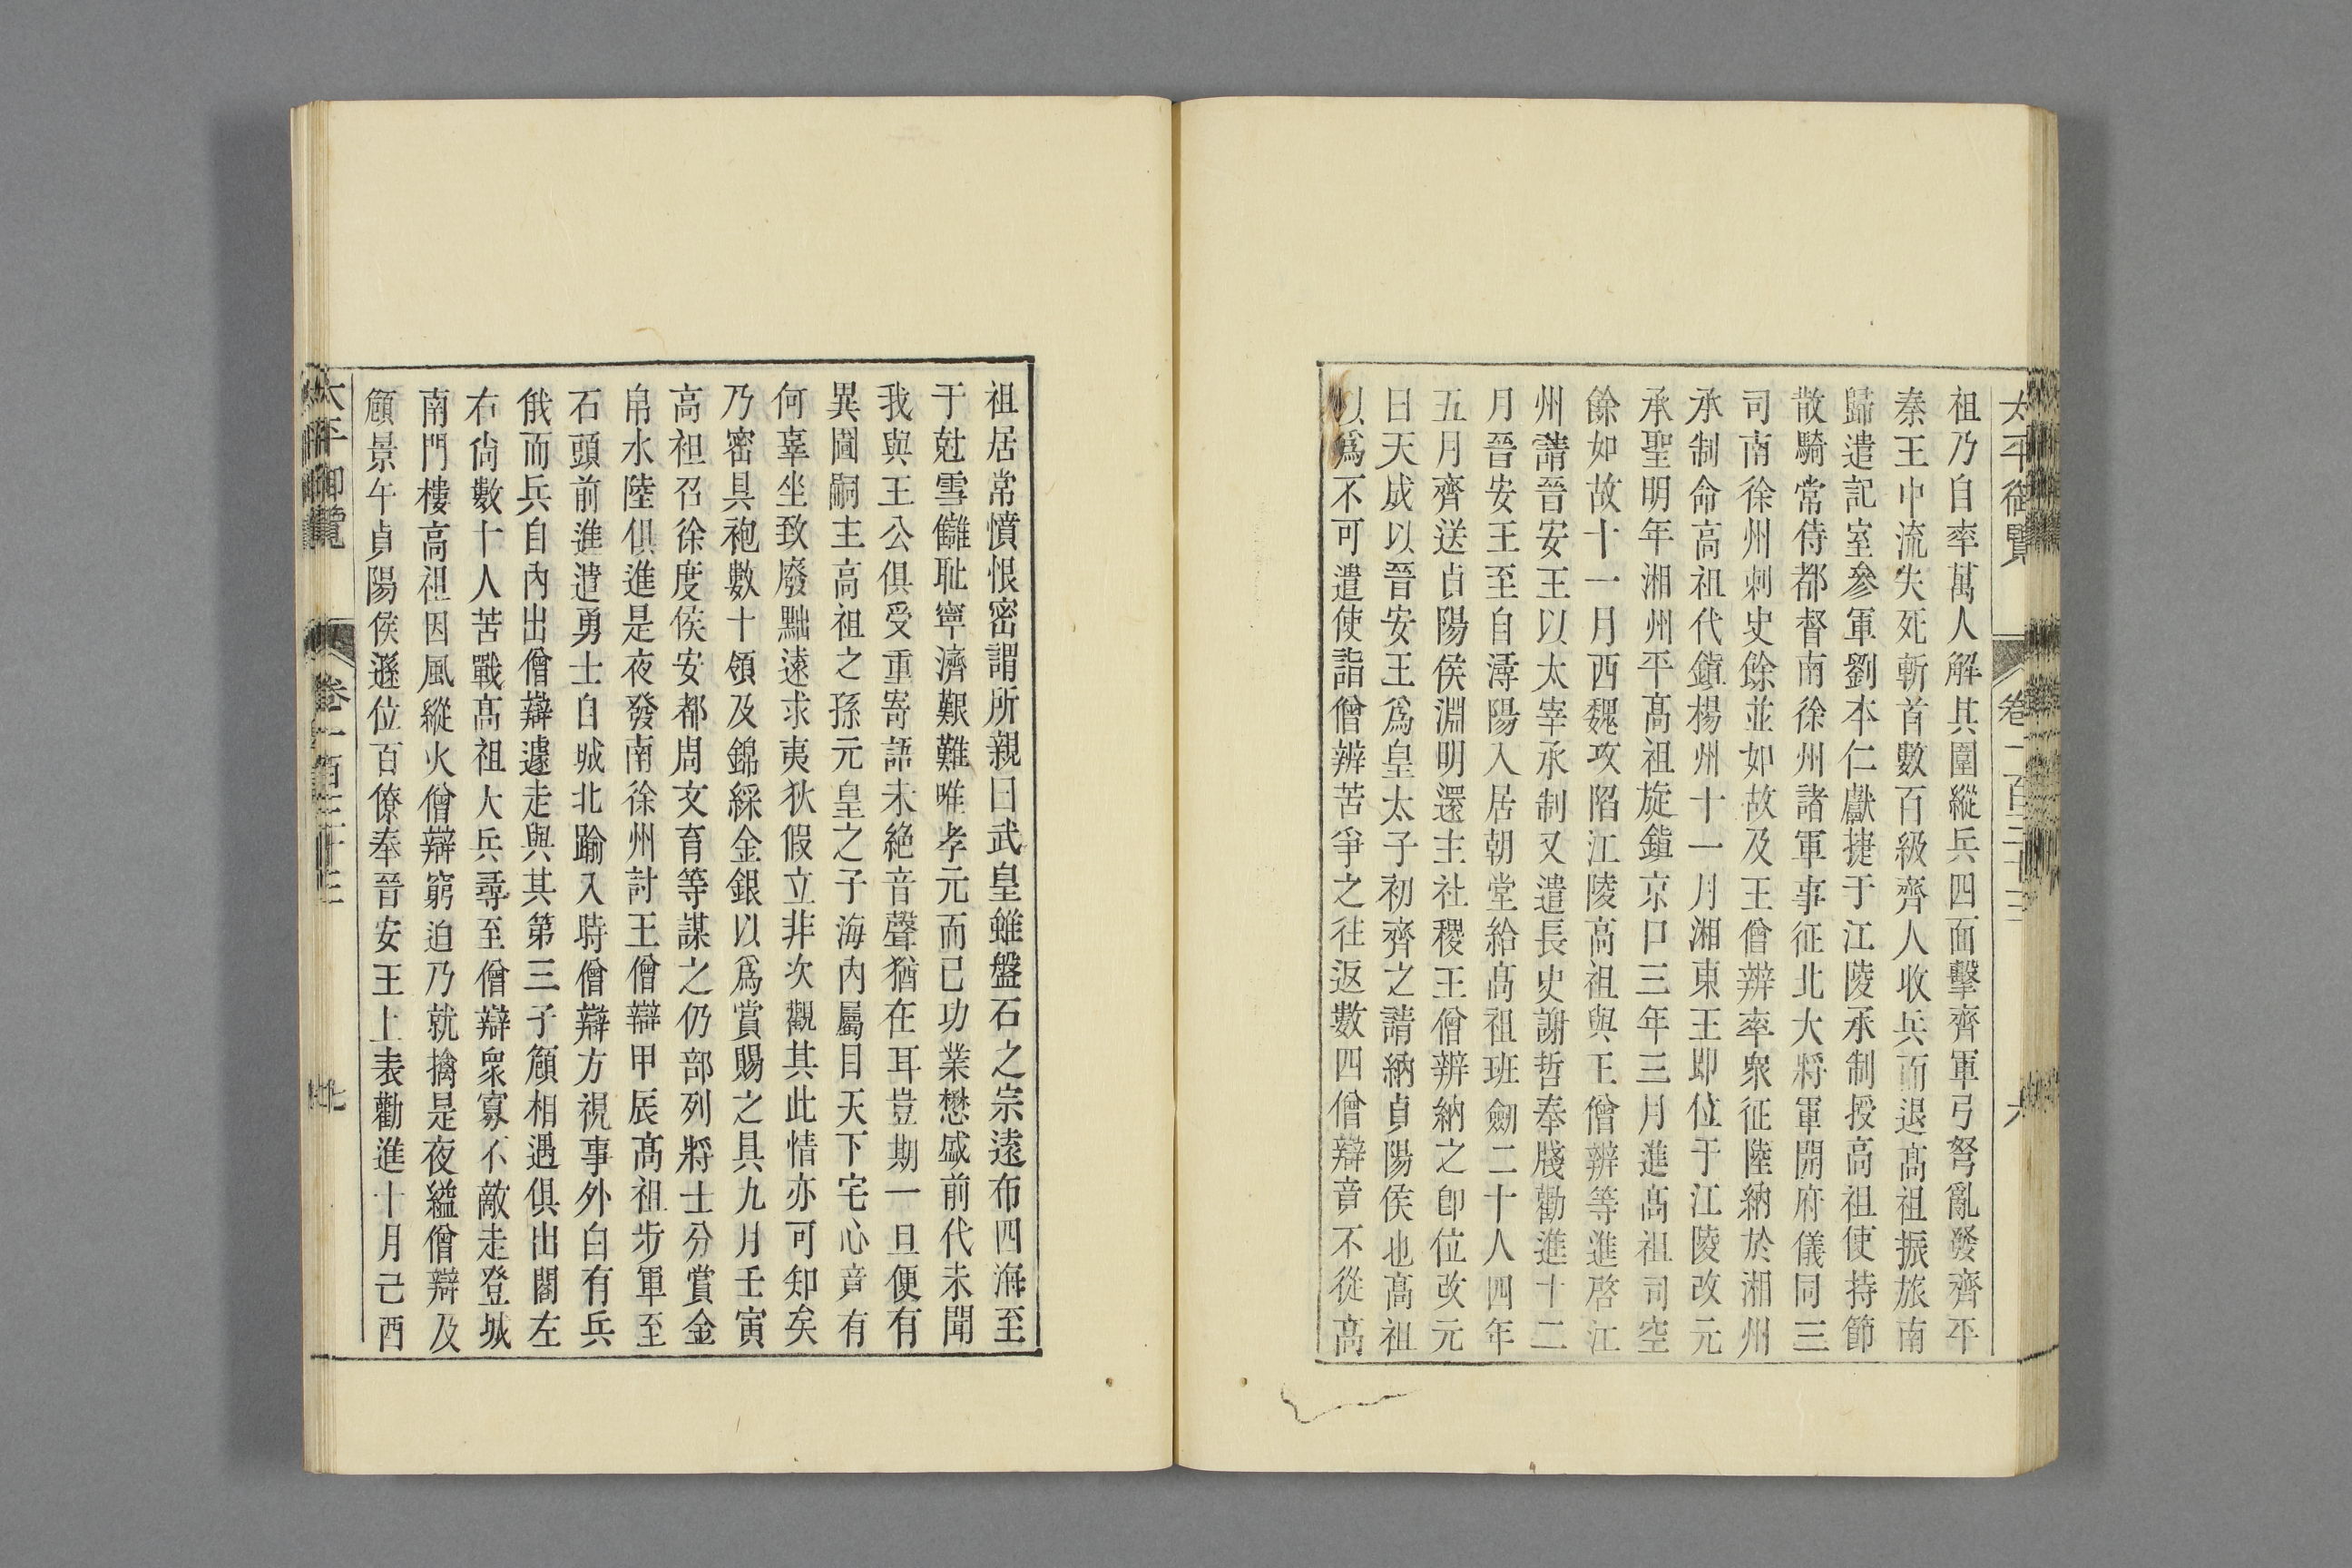 祖乃自率萬人解其圍縱兵四面擊齊軍弓弩亂發齊平
秦王中流失死斬首數百級齊人收兵而退髙祖振旅南
歸遣記室參軍劉本仁獻捷于江陵承制授高祖使持節
散騎常侍都督南徐州諸軍事征北大將軍開府儀同三
司南徐州刺史餘並如故及王僧辨率衆征陸納於湘州
承制命高祖代鎮楊州十一月湘東王即位于江陵改元
承聖明年湘州平髙祖旋鎮京口三年三月進髙祖司空
餘如故十一月西魏攻陷江陵高祖與王僧辨等進啓江
州請晉安王以太宰承制又遣長史謝哲奉牋勸進十二
月晉安王至自潯陽入居朝堂給髙祖班劒二十人四年
五月齊送貞陽侯淵明還主社稷王僧辨納之卽位改元
曰天成以晉安王爲皇太子初齊之請納貞陽侯也髙祖
以爲不可遣使詣僧辨苦爭之往返數四僧辯竟不從高
祖居常憤恨密謂所親曰武皇雖盤石之宗遠布四海至
于尅雪讎耻寧濟艱難唯孝元而已功業懋盛前代未聞
我與王公俱受重寄語未絶音聲猶在耳豈期一旦便有
異圖嗣主高祖之孫元皇之子海內屬目天下宅心竟有
何辜坐致廢黜遠求夷狄假立非次觀其此情亦可知矣
乃密具袍數十領及錦綵金銀以爲賞賜之具九月壬寅
高祖召徐度侯安都周文育等謀之仍部列將士分賞金
帛水陸俱進是夜發南徐州討王僧辯甲辰髙祖步軍至
石頭前進遣勇士自城北踰入時僧辯方視事外白有兵
俄而兵自內出僧辯遽走與其第三子頠相遇俱出閣左
右尙數十人苦戰髙祖大兵尋至僧辯衆寡不敵走登城
南門樓高祖因風縱火僧辯窮迫乃就擒是夜縊僧辯及
頠景午貞陽侯遜位百僚奉晉安王上表勸進十月己酉
太平御覽 卷一百三十三